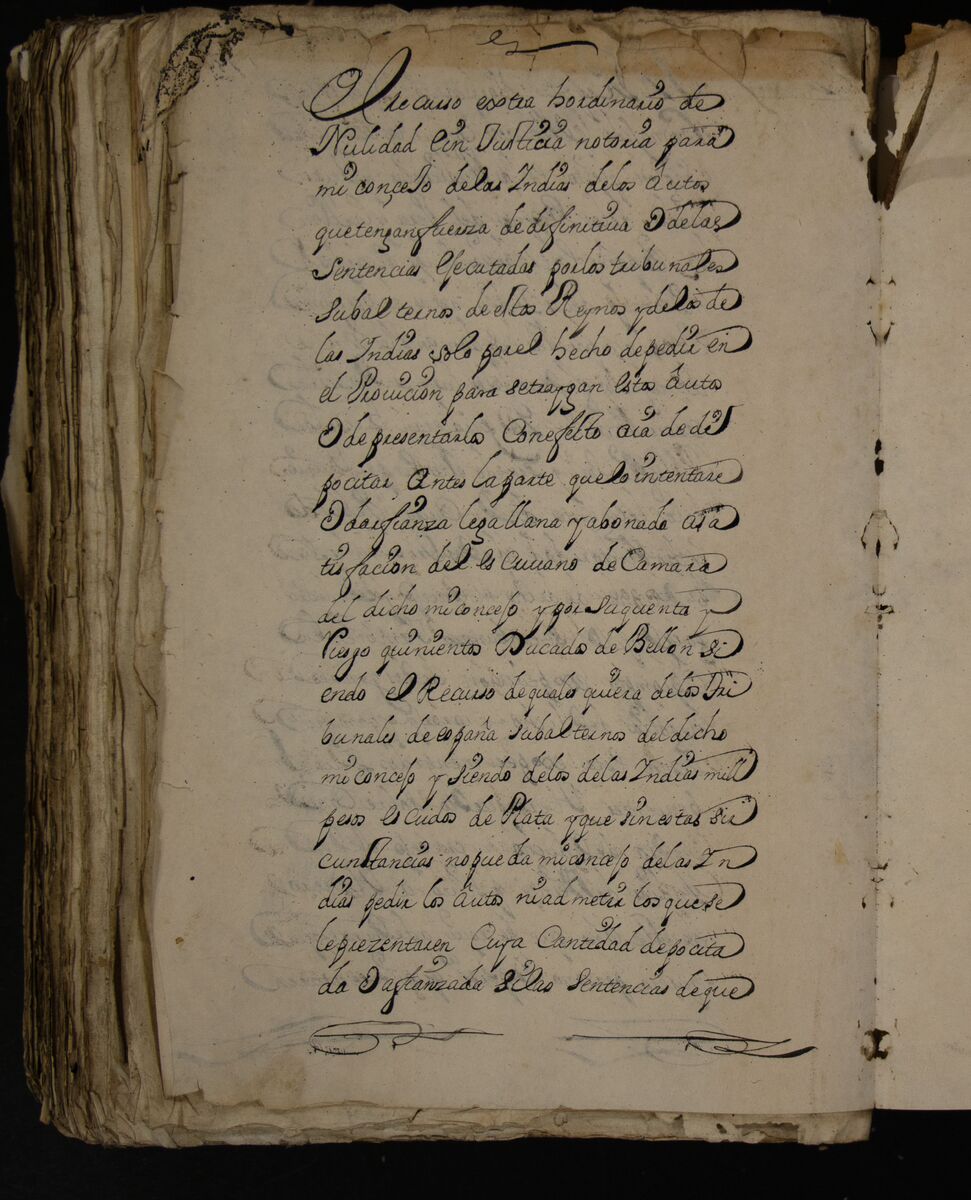 El recurso extra hordinario de
Nulidad e in Justicia notoria para
mi conçeJo delas Indias delos Autos
que tengan fuerza de difinitiua O delas
Sentencias efecutadas por los tribunales
subal ternos de estos Reynos y delos de
las Indias solo por el hecho de pedir en
el Prouicion para se traygan estos Autos
O de presentarlos Con efecto aia de de
pocitar Antes la parte que lo intentare
O dar fianza lega llana y abonada a sa
tisfacion del es Criuano de Camara
del dicho mi concejo y por su quenta y
riesgo quinientos Ducados de Bellon si
endo el Recurso de quales quiera delos Tri
bunales de españa subal ternos del dicho
mi concejo y siendo delos delas Indias mill
pesos es cudos de Plata y que sin estas sir
cunstancias no pue da mi concejo delas In
dias pedir los Autos ni ad metir los que se
le prezentaren Cuya Cantidad depocita
da O afianzada si las Sentencias de que